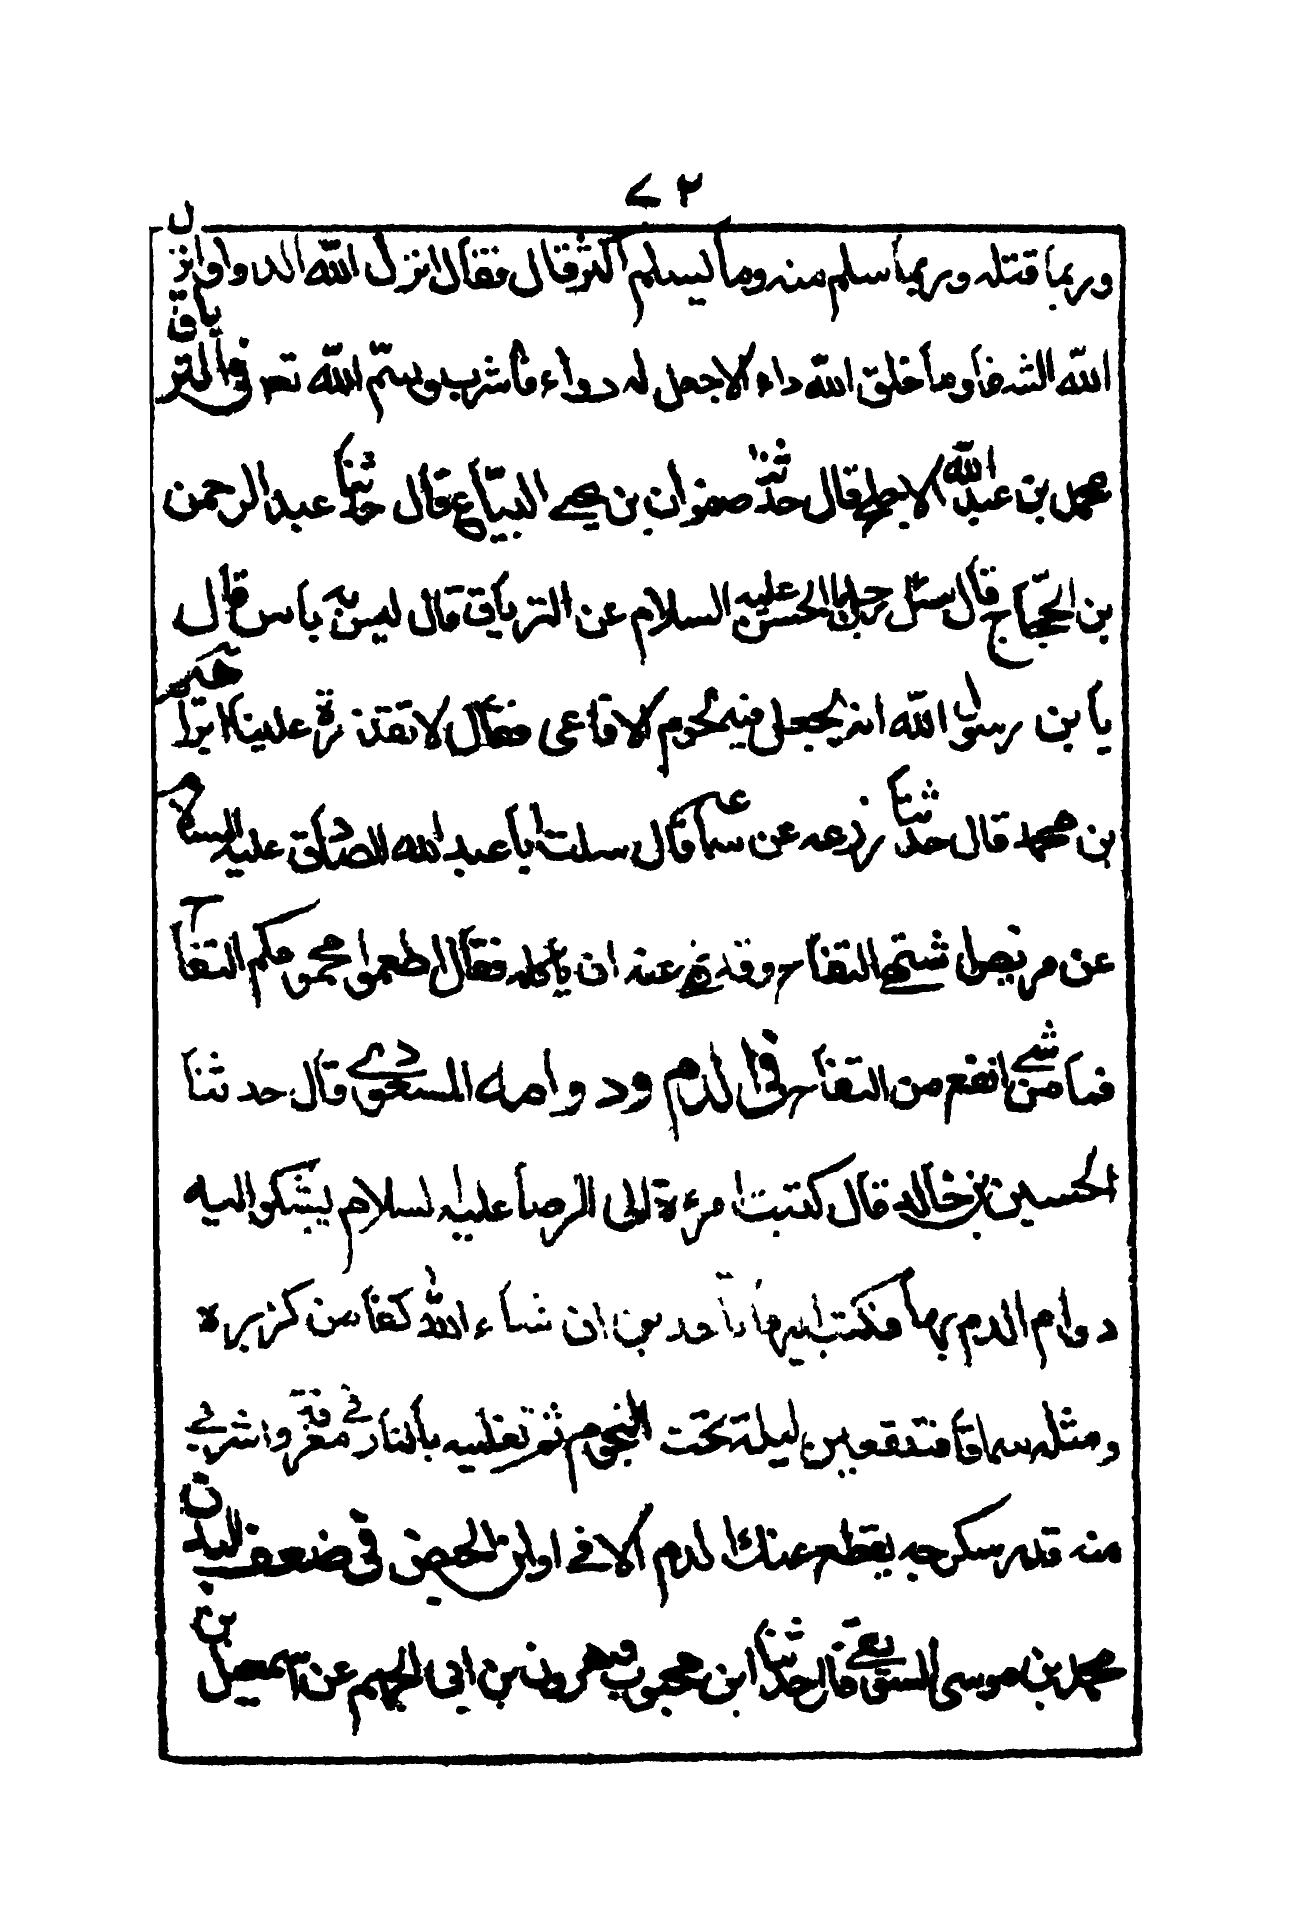 ٧٢
وربما قتله وربما سلم منه وما يسلم اكثر قال فقال انزل الله الداء وانزل
الله الشفا وما خلق الله داء الا جعل له دواء فاشرب وسم الله تعه في الترياق
محمد بن عبد الله الاجلح قال حدثنا صفوان بن يحيى البياع قال حدثنا عبد الرحمن
بن الحجاج قال سئل رجل ابا الحسن عليه السلام عن الترياق قال ليس به باس قال
يا بن رسول الله انه يجعل فيه لحوم الافاعى فقال لا تقذره علينا ابراهيم
بن محمد قال حدثنا زرعه عن سماعه قال سلت ابا عبد الله الصادق عليه السلام
عن مريض اشتهى التفاح وقد نهى عنه ان يأكله فقال اطعموا محموميكم التفاح
فما من شي انفع من التفاح فى الدم ودوامه المستعدى قال حدثنا
الحسين بن خالد قال كتبت امرءة الى الرضا عليه لسلام يشكوا اليه
دوام الدم بها فكتب اليها تاخدين ان شاء الله كفا من كزبره
ومثله سماقا فتنقعين ليلة تحت النجوم ثم تغليه بالنار مغرفة واشربى
منه قدر سكرجه يقطع عنك الدم الا فى اوان الحيض فى ضعف البدن
محمد بن موسى السقيعى قال حدثنا ابن محبوب وهرون بن ابى الجهم عن اسمعيل بن